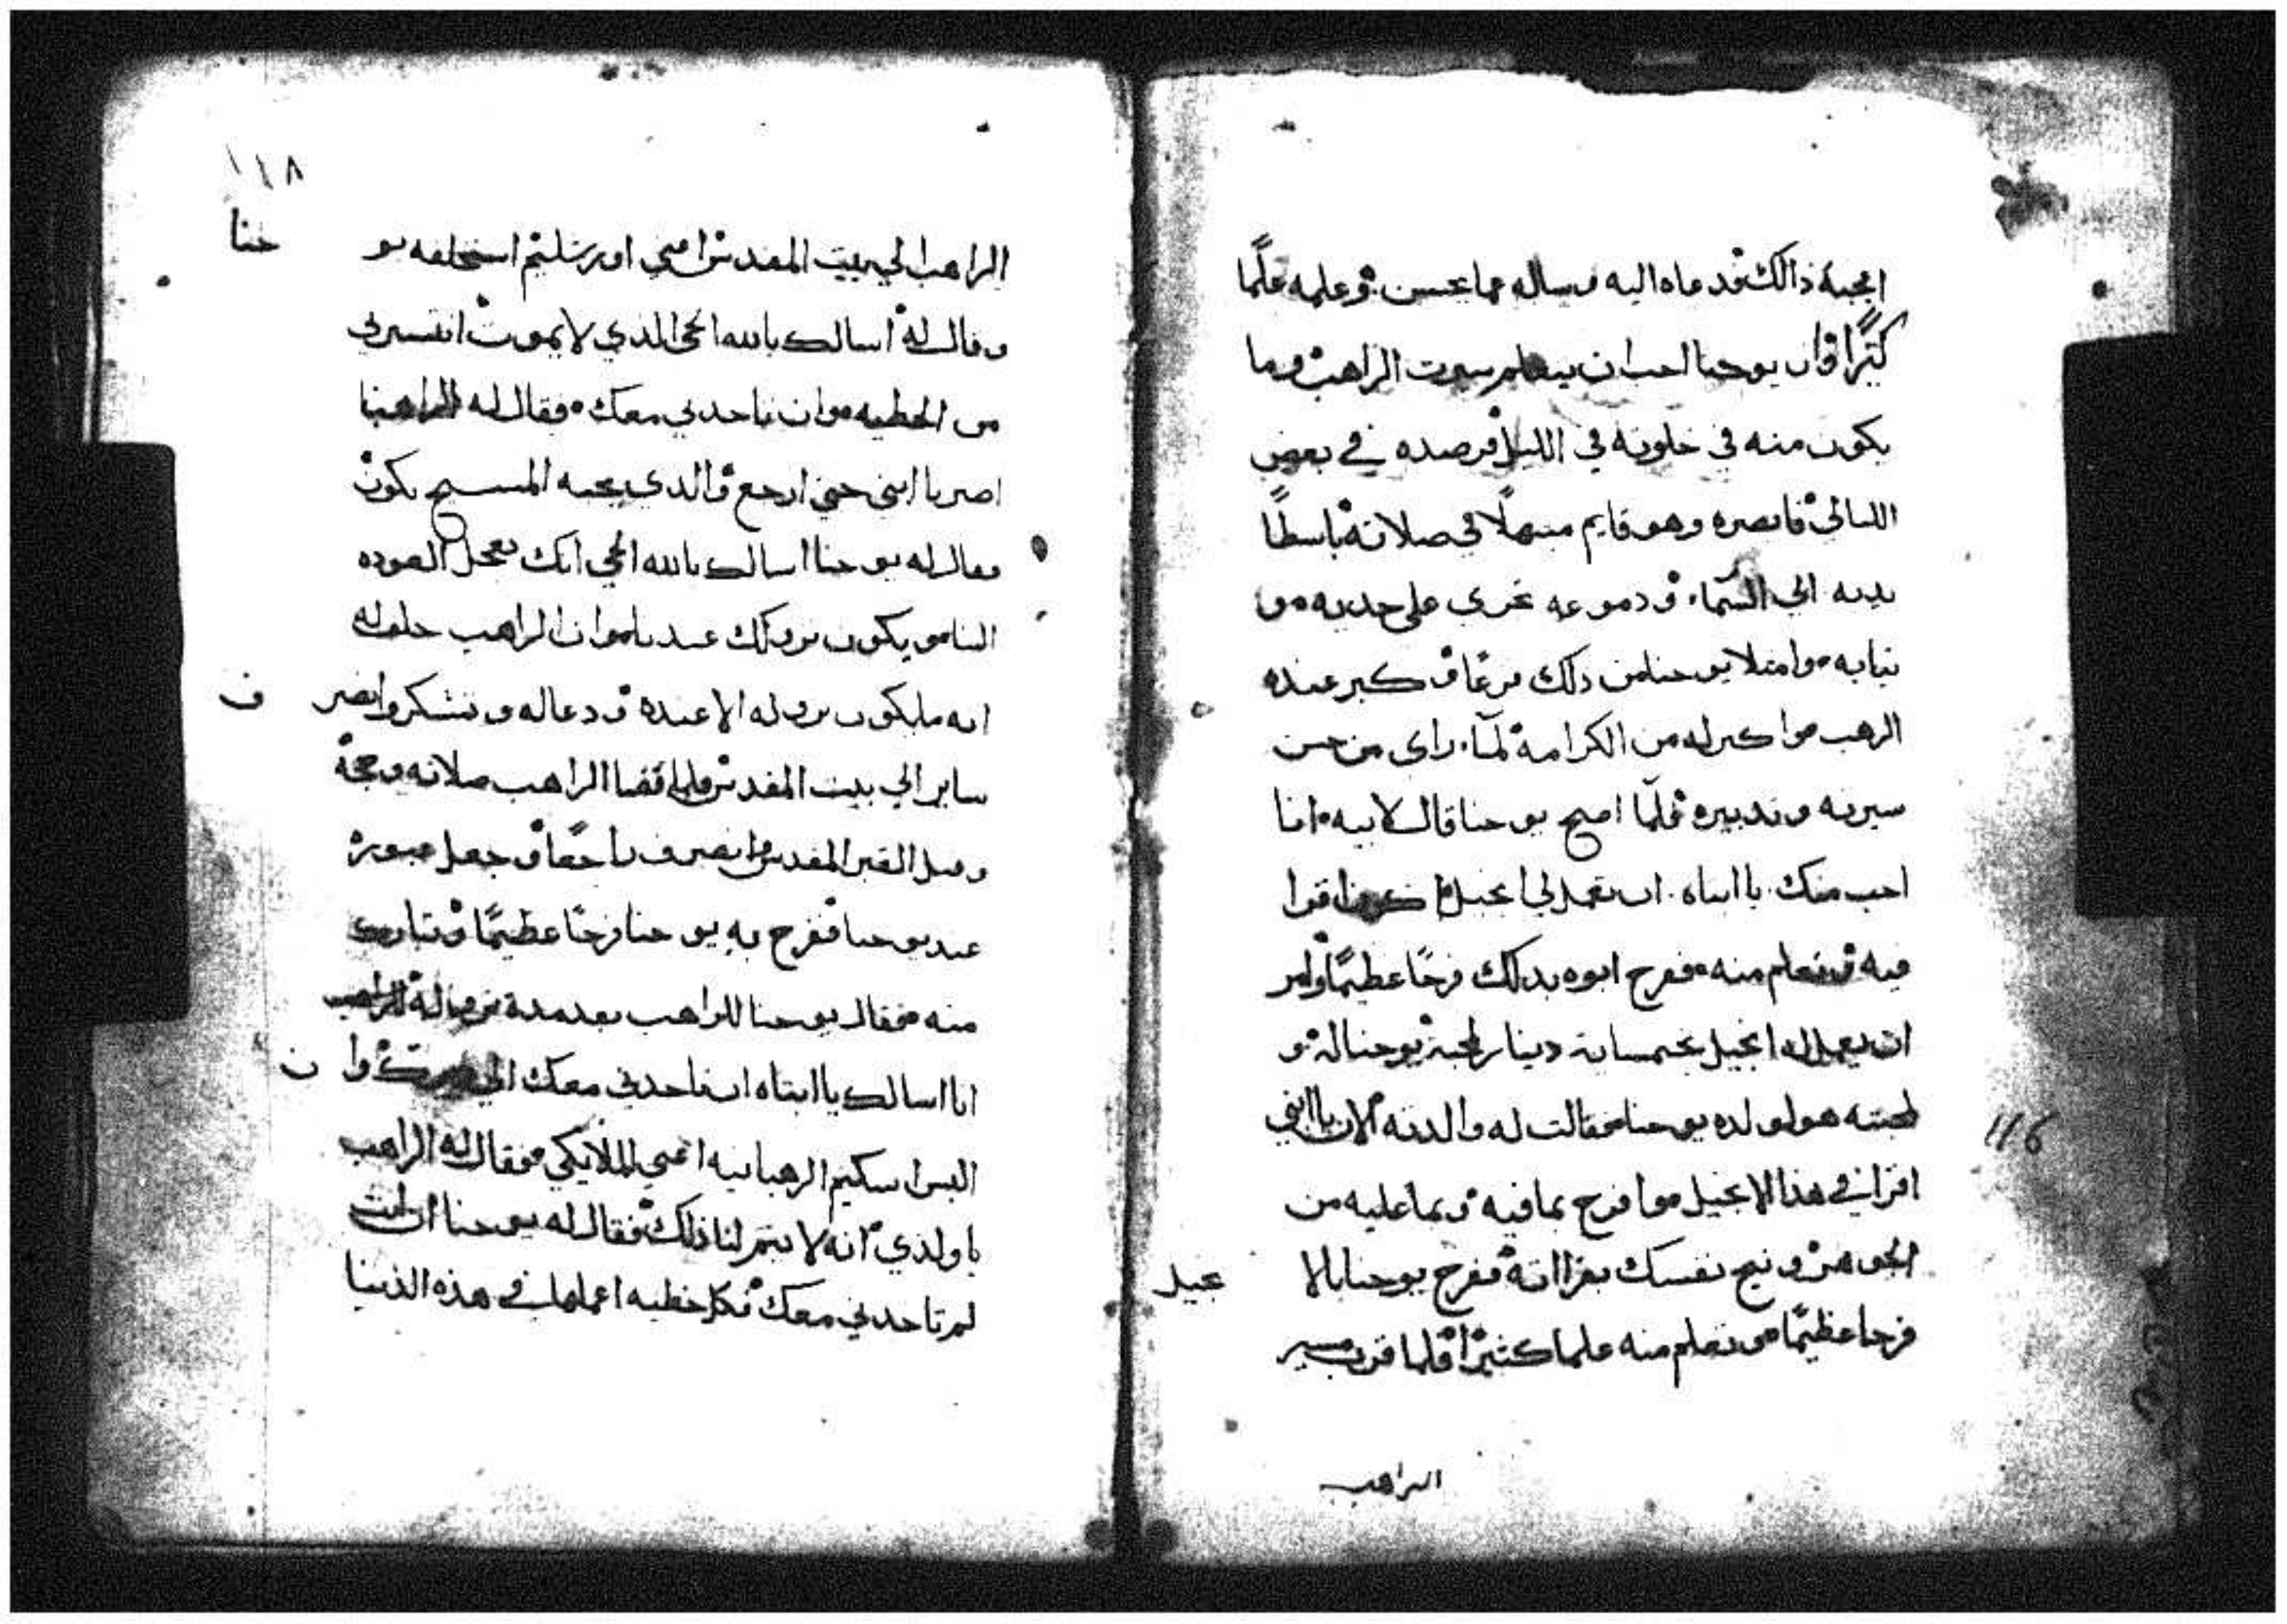 اعجبه ذالك ودعاه اليه وساله عما يحسن وعلمه علمًا
كثيرًا وان يوحنا احب ان يتعلم سيرت الراهب وما
يكون منه في خلوته في الليل فرصده في بعض
الليالي فابصره وهو قايم مبتهلًا في صلاته باسطًا
يديه الي السّماء ودموعه تجري علي خديه و
ثيابه وامتلا يوحنا من ذلك فرعًا وكبر عنده
الرهب واكبر له من الكرامة لمّا راي من حسن
سيرته وتدبيره فلمّا اصبح يوحنا قال لابيه انا
احب منك يا ابتاه ان تعمل لي انجيل اقرا
فيه وتعلم منه ففرح ابوه بذلك فرحًا عظيمًا وامر
ان يعمل له انجيل بخمسماية دينار لمحبة يوحنا له و
لمحبته هو لولده يوحنا فقالت له والدته الان يا ابني
اقرا في هذا الانجيل وافرح بما فيه وبما عليه من
الجوهر ونيح نفسك بقراته ففرح يوحنا بالا نجيل
فرحا عظيمًا وتعلم منه علما كثيرًا فلما قرب مسير
الراهب
116
١١٨
الراهب الي بيت المقدس اعني اورشليم استحلفه يو حنا
وقال له اسالك بالله الحي الذي لا يموت ان تسيرني
من الخطيه وان تاخدني معك فقال له الراهب
اصبر يا ابني حتي ارجع والذي يحبه المسيح يكون
فقال له يوحنا اسالك بالله الحي انك تعجل العوده
الينا ويكون نزولك عندنا وان الراهب حلف له
انه ما يكون نزوله الا عنده ودعا له وتشكر وانصر ف
ساير الي بيت المقدس فلما قضا الراهب صلاته وحجة
وقبل القبر المقدس وانصرف راجعًا وجعل عبوره
عند يوحنا ففرح به يوحنا فرحًا عظيمًا وتبارك
منه فقال يوحنا للراهب بعد مدة من
انا اسالك يا ابتاه ان تاخدني معك الي وا ن
البس اسكيم الرهبانيه اعني الملايكي فقال له الراهب
يا ولدي انه لا يتم لنا ذلك فقال له يوحنا ان انت
لم تاخدني معك فكل خطيه اعملها في هذه الدنيا